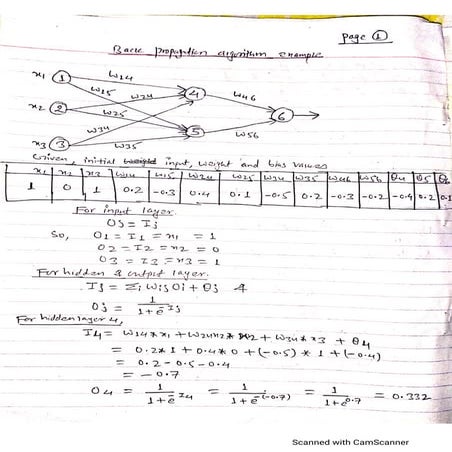 Page ①
Back propagation algorithm example
x1 1 w14 4 w46
w15
x2 2 w24 w25 6
x3 3 w34 5 w56
w35
Given, initial weight input, weight and bias values
x1 x2 x3 w14 w15 w24 w25 w34 w35 w46 w56 θ4 θ5 θ6
1 0 1 0.2 -0.3 0.4 0.1 -0.5 0.2 -0.3 -0.2 -0.4 0.2 0.1
For input layer.
Oj = Ij
So, O1 = I1 = x1 = 1
O2 = I2 = x2 = 0
O3 = I3 = x3 = 1
For hidden & output layer.
Ij = Σi wij Oi + θj &
Oj = 1/(1+e^-Ij)
For hidden layer 4,
I4 = w14*x1 + w24*x2 + w34*x3 + θ4
= 0.2*1 + 0.4*0 + (-0.5)*1 + (-0.4)
= 0.2-0.5-0.4
= -0.7
O4 = 1/(1+e^-I4) = 1/(1+e^-(-0.7)) = 1/(1+e^0.7) = 0.332
Scanned with CamScanner